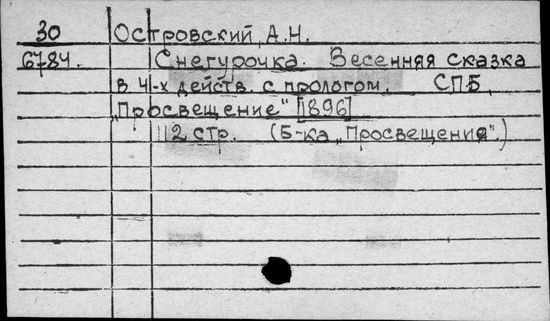 30 Островский, А.Н.
6784. Снегурочка. Весенняя сказка
в 4-х действ. с прологом. СПБ,
„Просвещение" [1896]
112 стр. (Б-ка „Просвещения".)